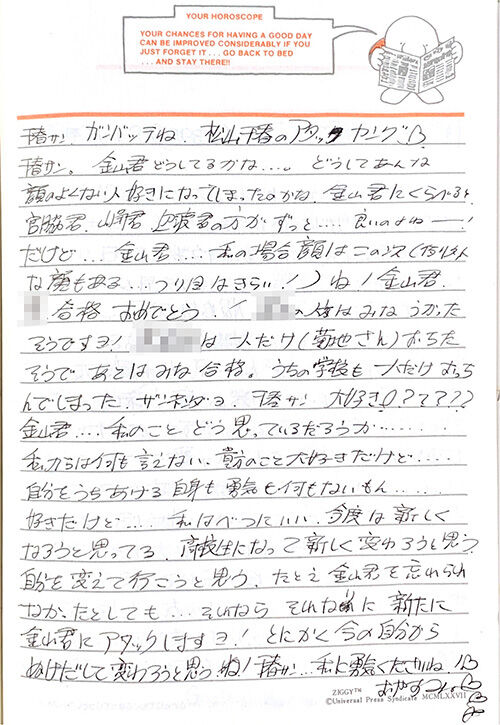 YOUR HOROSCOPE
YOUR CHANCES FOR HAVING A GOOD DAY
CAN BE IMPROVED CONSIDERABLY IF YOU
JUST FORGET IT . . . GO BACK TO BED
. . . AND STAY THERE!!
千春サン. ガンバッテね. 松山千春のアタックヤング
千春サン。金山君どうしてるかな...。どうしてあんな
顔のよくない人好きになってしまったのかな. 金山君にくらべると
宮脇君. 山崎君. の方がずっと.... 良いのよねー!
だけど... 金山君... 私の場合顔はこの次(
な顔もある... つり目はきらい!)ね! 金山君.
合格 おめでとう. の人はみな うかった
そうですヨ! は一人だけ(菊池さん)おちた
そうで あとはみな 合格。うちの学校も 一人だけ おっち
んでしまった ザンネンダヨ. 千春サン 大好き
金山君.... 私のこと どう思っているだろうか......
私からは何も言えない. 貴方のこと大好きだけど....
自分をうちあける 自身も 勇気も何もないもん....
好きだけど.... 私はべつにいい. 今度は新しく
なろうと思ってる. 高校生になって新しく変わろうと思う
自分を変えて行こうと思う. たとえ 金山君を忘れられ
なかったとしても... それなら それなりに 新たに
金山君に アタックしますヨ! とにかく 今の自分から
ぬけだして変わろうと思う. ね! 千春サン... 私に勇気くださいね.
おやすみ
ZIGGY™
©Universal Press Syndicate MCMLXXVII